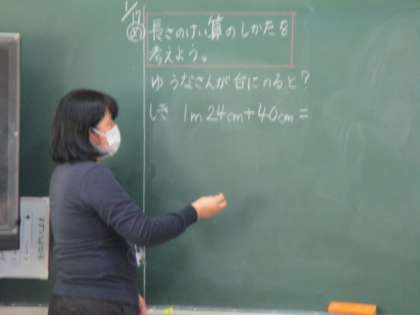 1/17
め 長さのけい算のしかたを
考えよう。
ゆうなさんが台にのると?
しき 1m24cm+40cm=